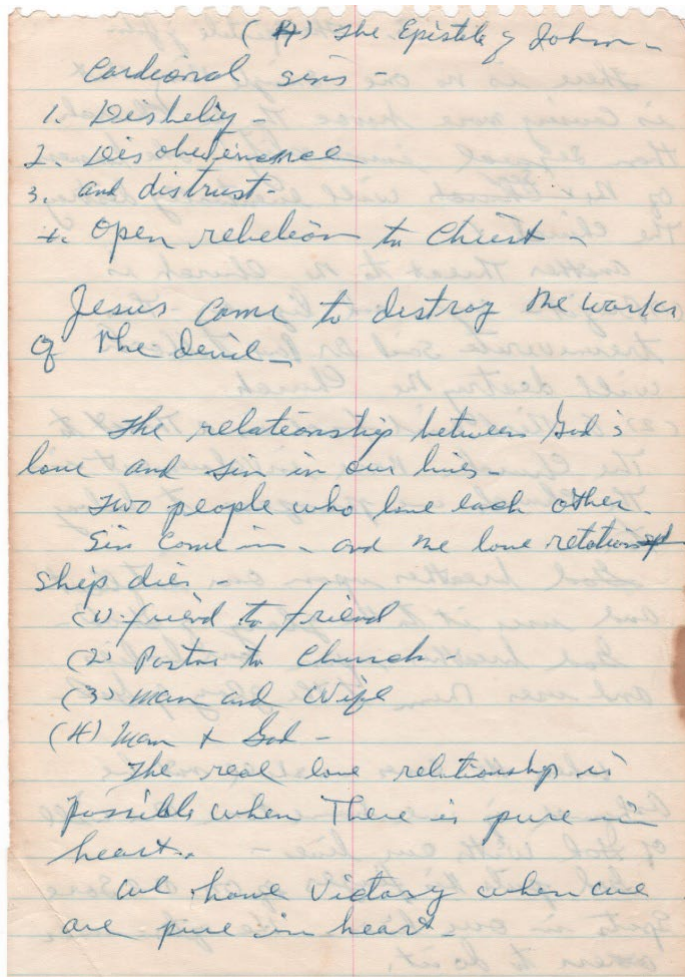 (4) The Epistle of John -
Cardional sins -
1. Disbelief -
2. Disobedience
3. and distrust -
4. Open rebeleion to Christ -
Jesus come to distroy the works
of the devil -
The relationship between God's
love and sin in our lives -
Two people who love each other.
Sin come in - and the love relation
ship dies -
(1) friend to friend
(2) Pastor to Church -
(3) man and wife
(4) man + God -
The real love relationship is
possible when There is pure in
heart.
We have victory when we
are pure in heart -